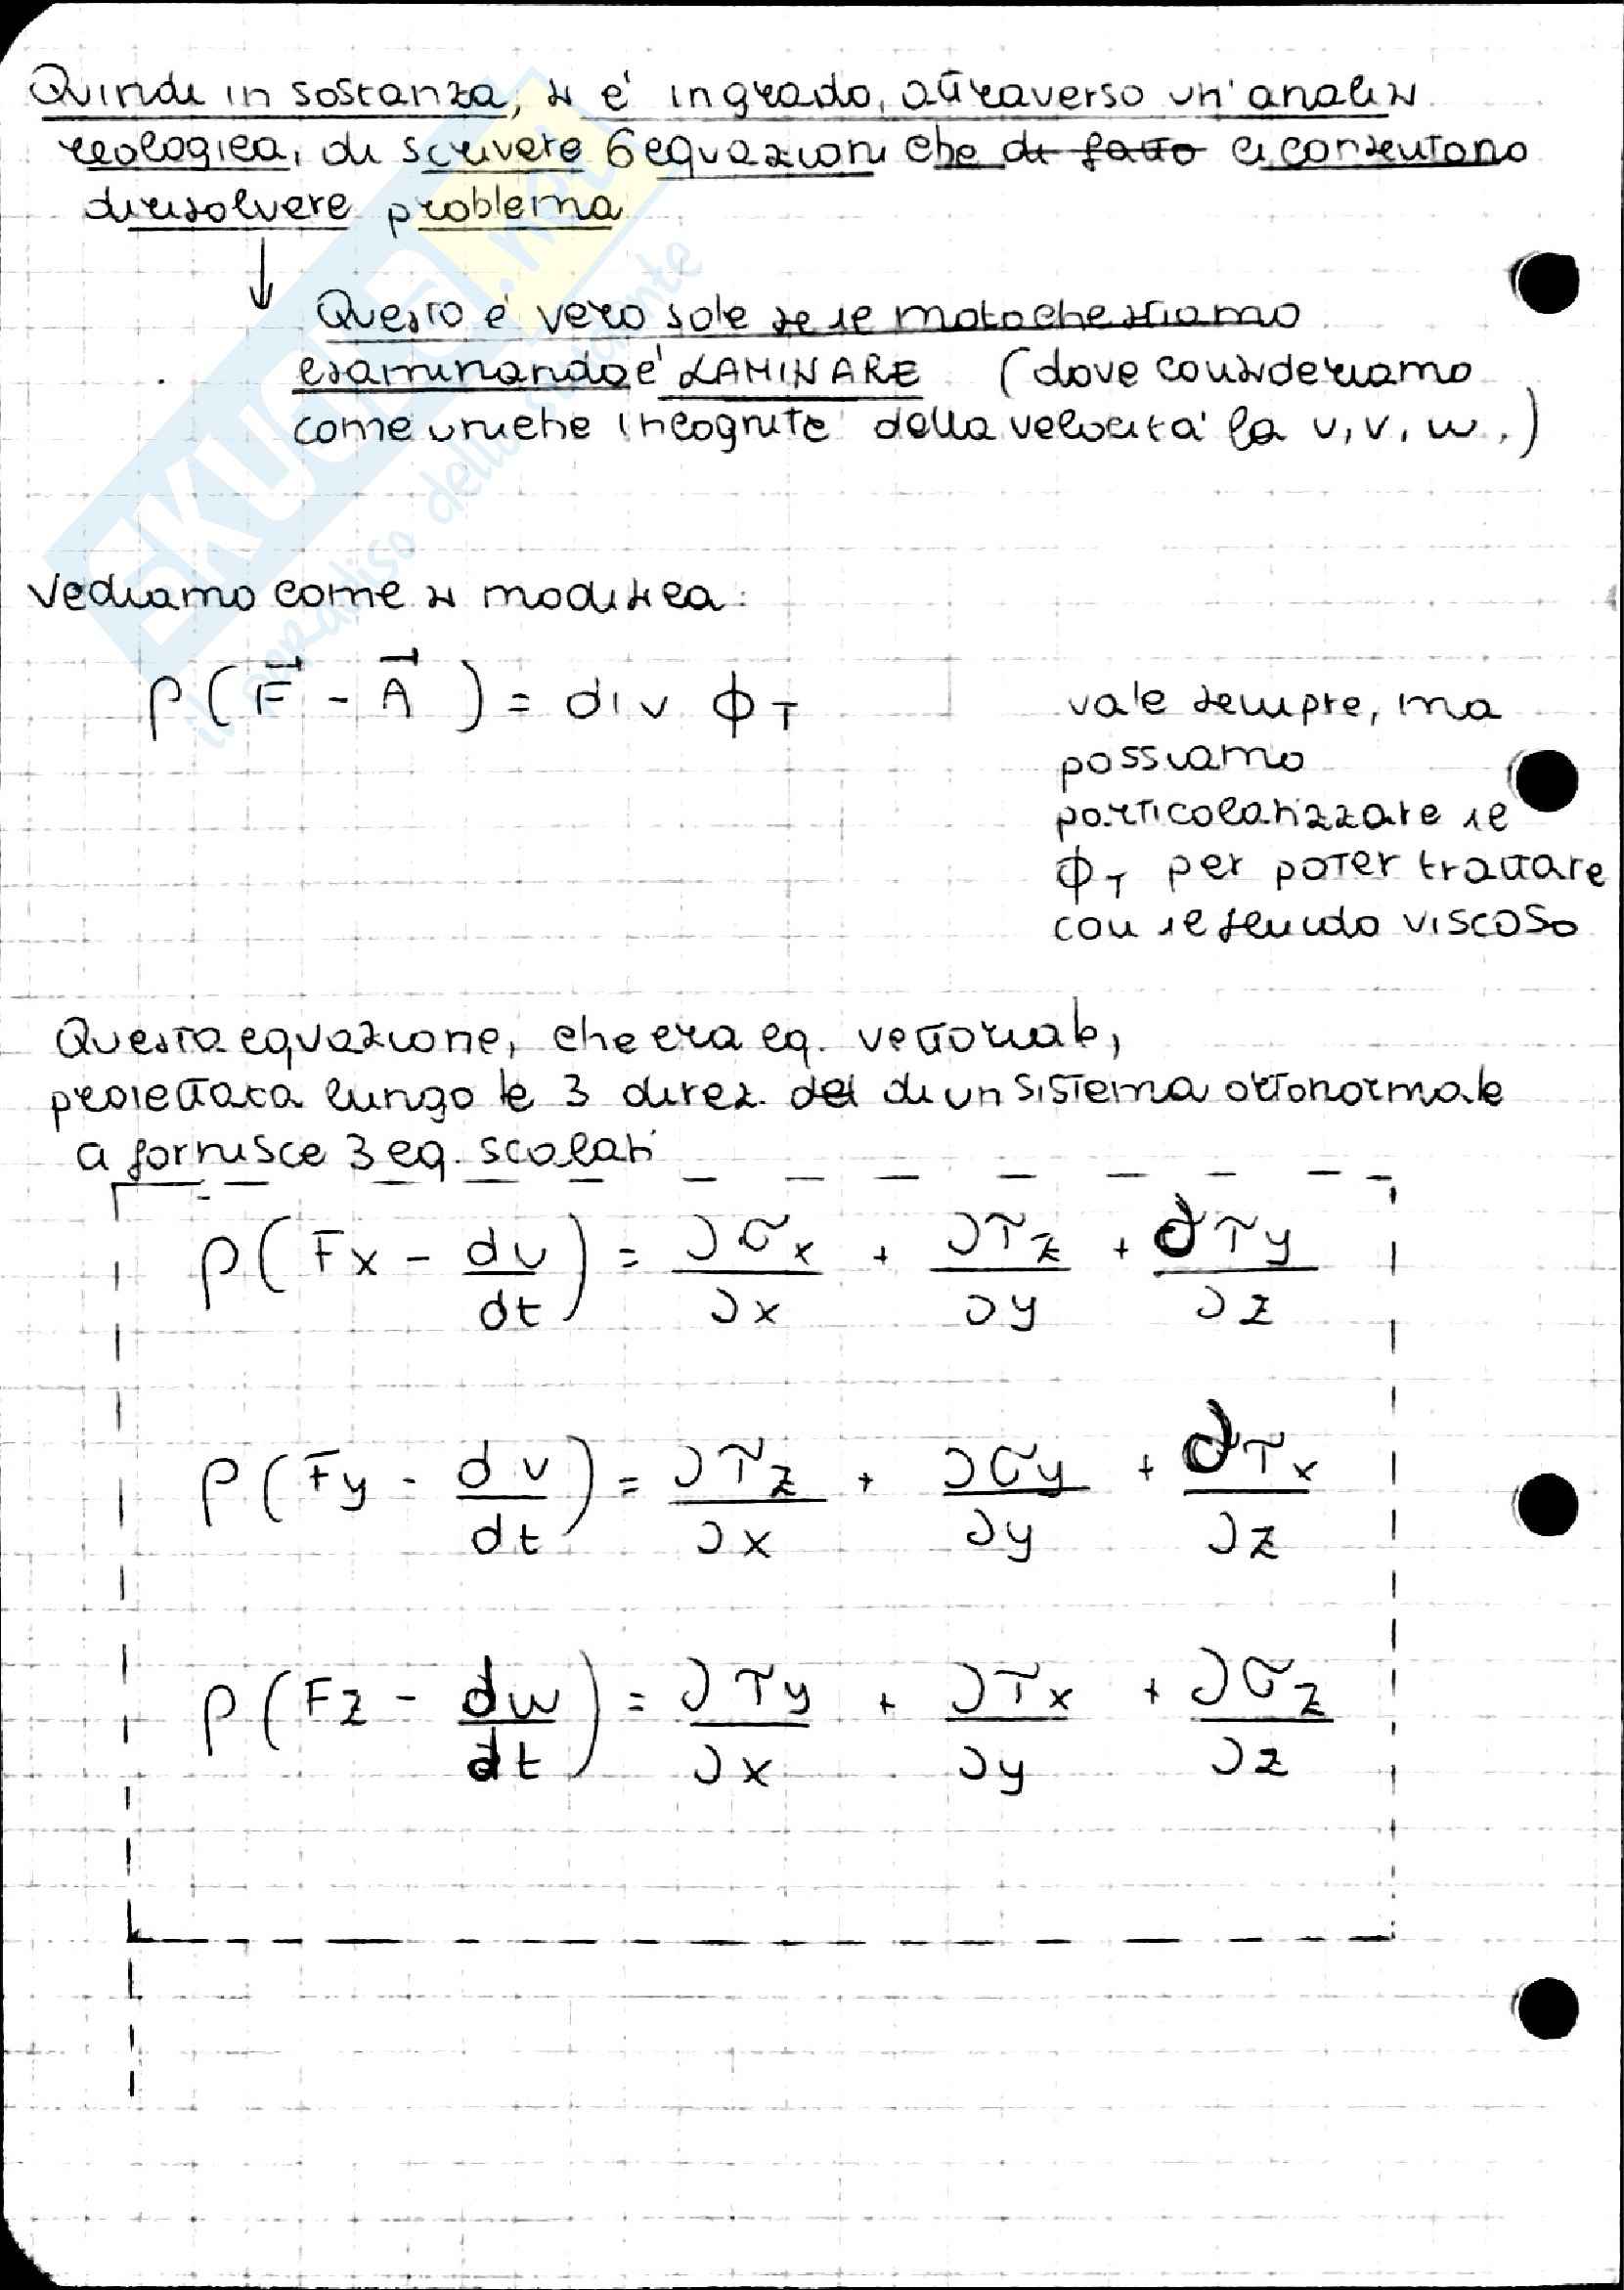 Quindi in sostanza, si è in grado, attraverso un'analisi
reologica, di scrivere 6 equazioni che di fatto ci consentono
di risolvere problema
Questo è vero solo se il moto che stiamo
esaminando è LAMINARE (dove consideriamo
come uniche incognite della velocità la u, v, w.)
Vediamo come si modifica:
ρ(F⃗ - A⃗) = div ϕ_T
vale sempre, ma
possiamo
particolarizzare il
ϕ_T per poter trattare
con il fluido viscoso
Questa equazione, che era eq. vettoriale,
proiettata lungo le 3 direz. del di un sistema ortonormale
ci fornisce 3 eq. scalari
ρ(Fx - du/dt) = ∂σx/∂x + ∂τz/∂y + ∂τy/∂z
ρ(Fy - dv/dt) = ∂τz/∂x + ∂σy/∂y + ∂τx/∂z
ρ(Fz - dw/dt) = ∂τy/∂x + ∂τx/∂y + ∂σz/∂z
SKUOLA.net
il paradiso dello studente